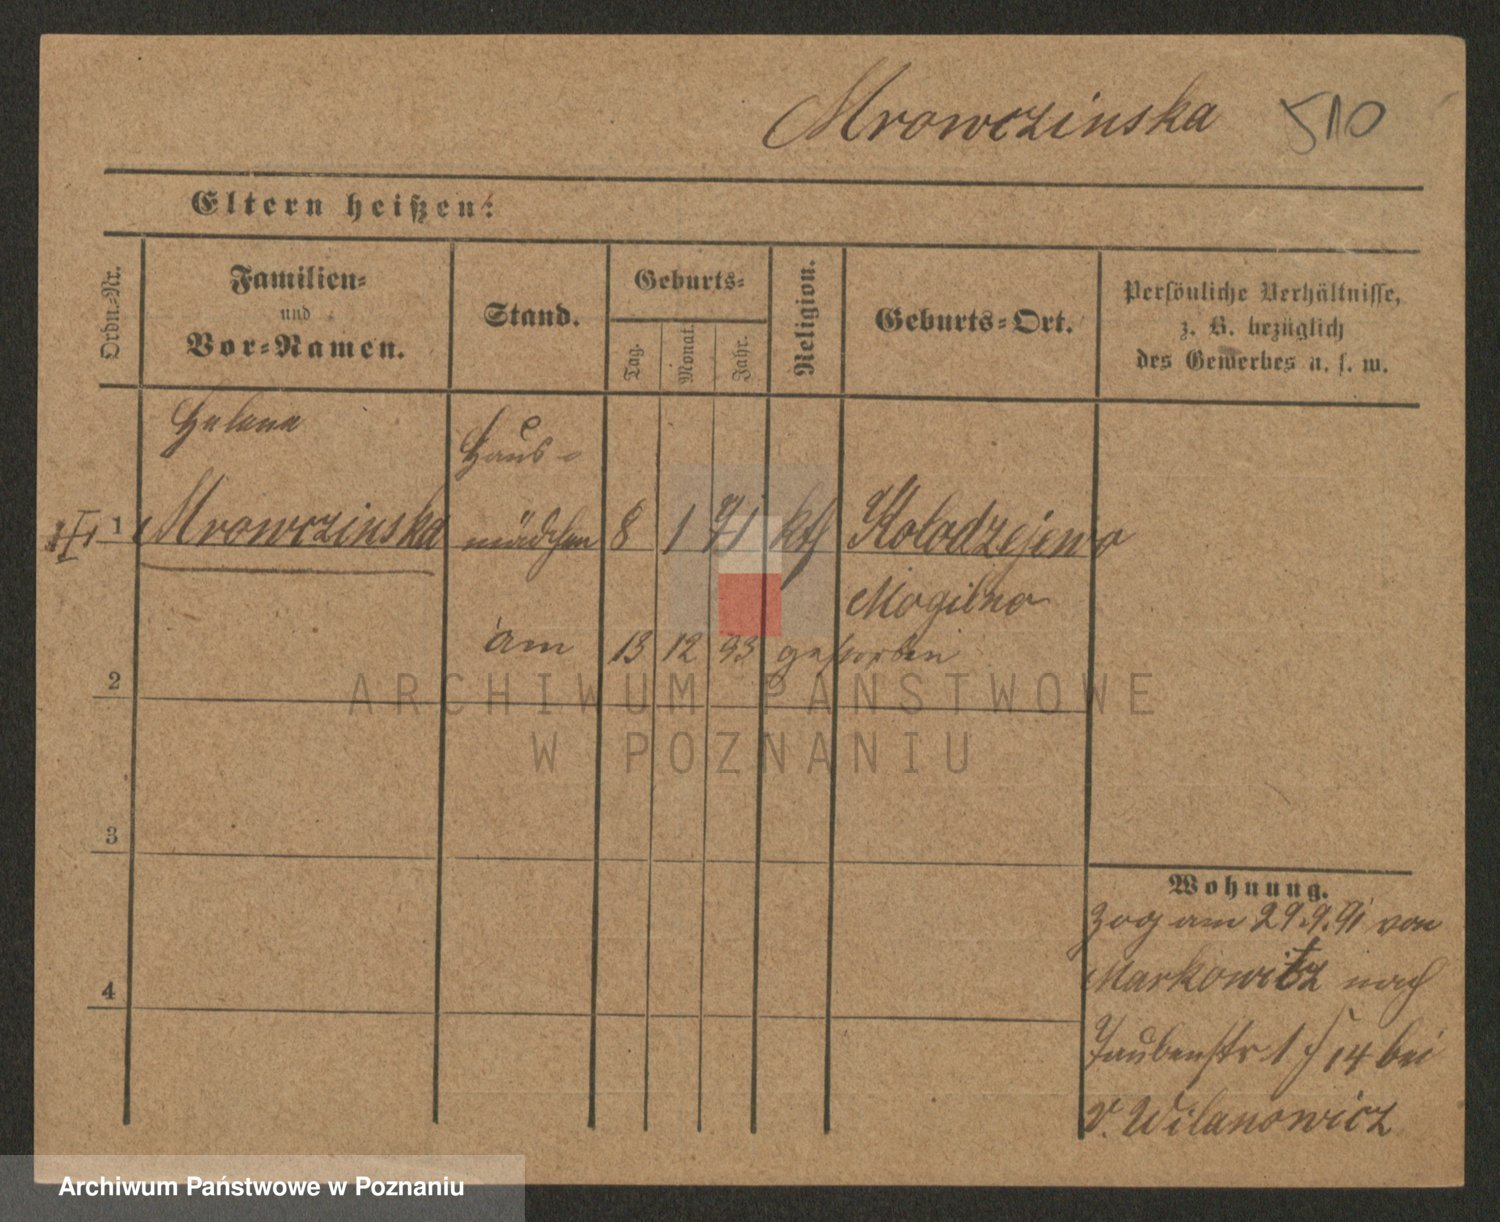 Mrowczinska 510
Eltern heißen:
Ordn=Nr.
Familien=
und
Vor=Namen.
Stand.
Geburts=
Tag.
Monat.
Jahr.
Religion.
Geburts=Ort.
Persönliche Verhältnisse,
z. B. bezüglich
des Gewerbes u. s. w.
Helena
Haus-
1 Mrowczinska mädchen 8 1 71 kth Kolodzejewo
Mogilno
am 13 12 93 gestorben
2
3
4
Wohnung.
Zog am 29.9.91 von
Markowitz nach
Taubenstr 1 / 14 bei
v. Wilanowicz
ARCHIWUM PAŃSTWOWE
W POZNANIU
Archiwum Państwowe w Poznaniu